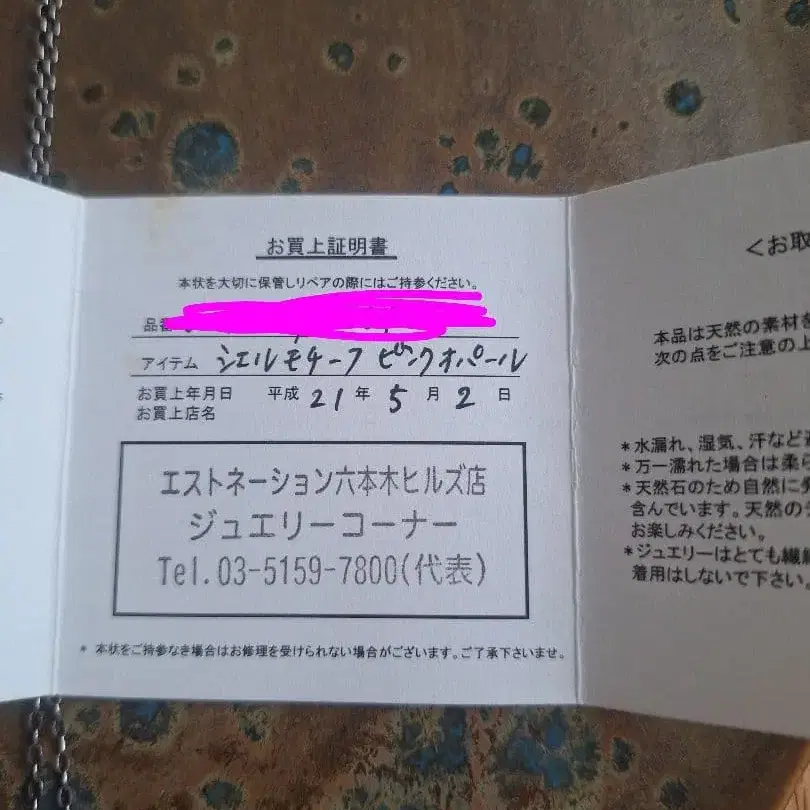 お買上証明書
本状を大切に保管しリペアの際にはご持参ください。
品番
アイテム シエルモチーフ ピンクオパール
お買上年月日 平成 21 年 5 月 2 日
お買上店名
エストネーション六本木ヒルズ店
ジュエリーコーナー
Tel.03-5159-7800(代表)
* 本状をご持参なき場合はお修理を受けられない場合がございます。ご了承下さいませ。
<お取
本品は天然の素材を
次の点をご注意の上
*水漏れ、湿気、汗など
*万一濡れた場合は柔ら
*天然石のため自然に発
含んでいます。天然の
お楽しみください。
*ジュエリーはとても繊細
着用はしないで下さい。